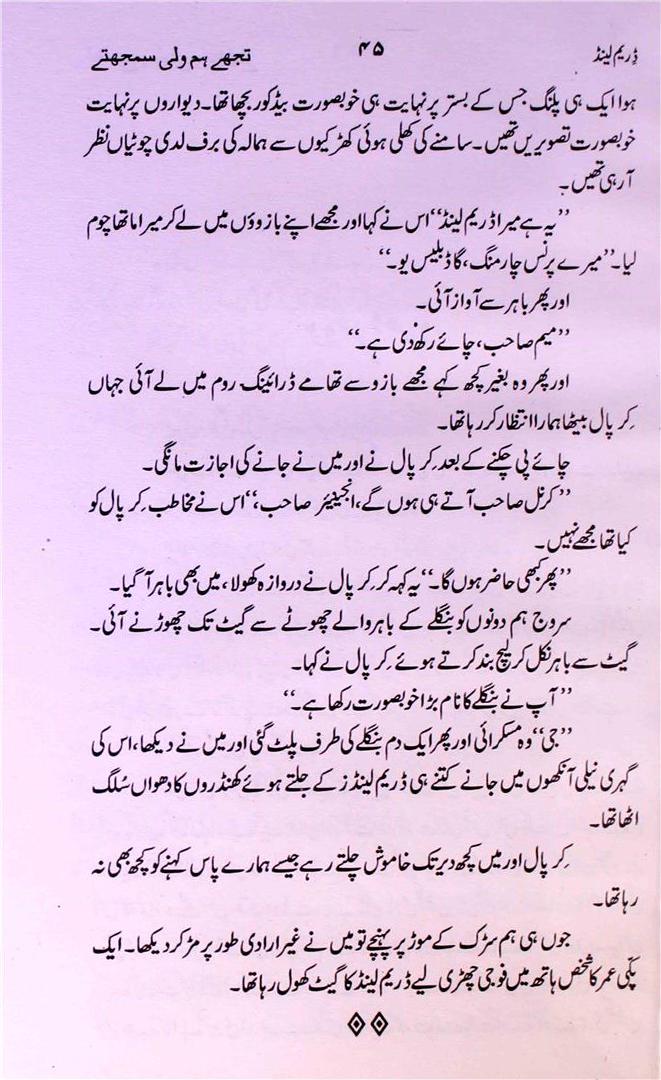 ڈریم لینڈ ۴۵ تجھے ہم ولی سمجھتے
ہوا ایک ہی پلنگ جس کے بستر پر نہایت ہی خوبصورت بیڈ کور بچھا تھا۔ دیواروں پر نہایت
خوبصورت تصویریں تھیں۔ سامنے کی کھلی ہوئی کھڑکیوں سے ہمالہ کی برف لدی چوٹیاں نظر
آرہی تھیں۔
’’یہ ہے میرا ڈریم لینڈ‘‘ اس نے کہا اور مجھے اپنے بازوؤں میں لے کر میرا ماتھا چوم
لیا۔ ’’میرے پرنس چارمنگ، گاڈ بلیس یو۔‘‘
اور پھر باہر سے آواز آئی۔
’’میم صاحب، چائے رکھ دی ہے۔‘‘
اور پھر وہ بغیر کچھ کہے مجھے بازو سے تھامے ڈرائینگ روم میں لے آئی جہاں
کِرپال بیٹھا ہمارا انتظار کر رہا تھا۔
چائے پی چکنے کے بعد کِرپال نے اور میں نے جانے کی اجازت مانگی۔
’’کرنل صاحب آتے ہی ہوں گے، انجینیئر صاحب،‘‘ اس نے مخاطب کِرپال کو
کیا تھا مجھے نہیں۔
’’پھر کبھی حاضر ہوں گا۔‘‘ یہ کہہ کر کِرپال نے دروازہ کھولا، میں بھی باہر آ گیا۔
سروج ہم دونوں کو بنگلے کے باہر والے چھوٹے سے گیٹ تک چھوڑنے آئی۔
گیٹ سے باہر نکل کر لیچ بند کرتے ہوئے کِرپال نے کہا۔
’’آپ نے بنگلے کا نام بڑا خوبصورت رکھا ہے۔‘‘
’’جی‘‘ وہ مسکرائی اور پھر ایک دم بنگلے کی طرف پلٹ گئی اور میں نے دیکھا، اس کی
گہری نیلی آنکھوں میں جانے کتنے ہی ڈریم لینڈز کے جلتے ہوئے کھنڈروں کا دھواں سُلگ
اٹھا تھا۔
کِرپال اور میں کچھ دیر تک خاموش چلتے رہے جیسے ہمارے پاس کہنے کو کچھ بھی نہ
رہا تھا۔
جوں ہی ہم سڑک کے موڑ پر پہنچے تو میں نے غیر ارادی طور پر مڑ کر دیکھا۔ ایک
پکّی عمر کا شخص ہاتھ میں فوجی چھڑی لیے ڈریم لینڈ کا گیٹ کھول رہا تھا۔